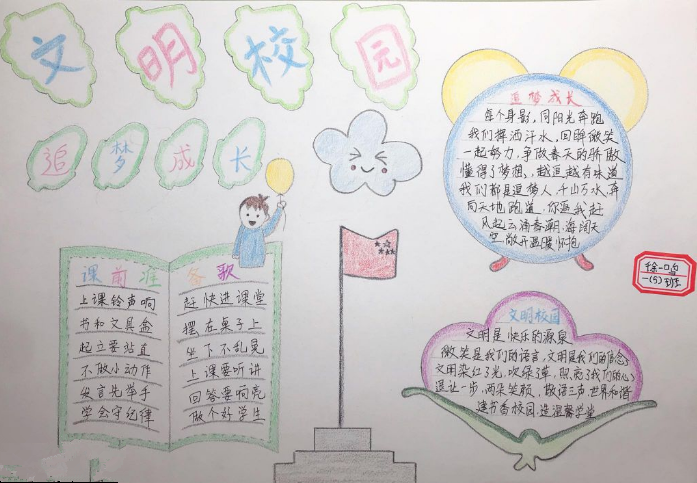 文明校园
追梦成长
课前准备歌
上课铃声响 赶快进课堂
书和文具盒 摆在桌子上
起立要站直 坐下不乱晃
不做小动作 上课要听讲
发言先举手 回答要响亮
学会守纪律 做个好学生
追梦成长
每个身影,同阳光奔跑
我们挥洒汗水,回眸微笑
一起努力,争做春天的骄傲
懂得了梦想,越逛越有味道
我们都是追梦人,千山万水,奔
向天地跑道,你追我赶
风起云涌春潮,海阔天
空敞开温暖怀抱
一(5)班
文明校园
文明是快乐的源泉
微笑是我们的语言,文明是我们的信念
文明染红了光,吹绿了草,照亮了我们的心
退让一步,两朵笑颜,敬语三声,世界和谐
建书香校园,造温馨学堂